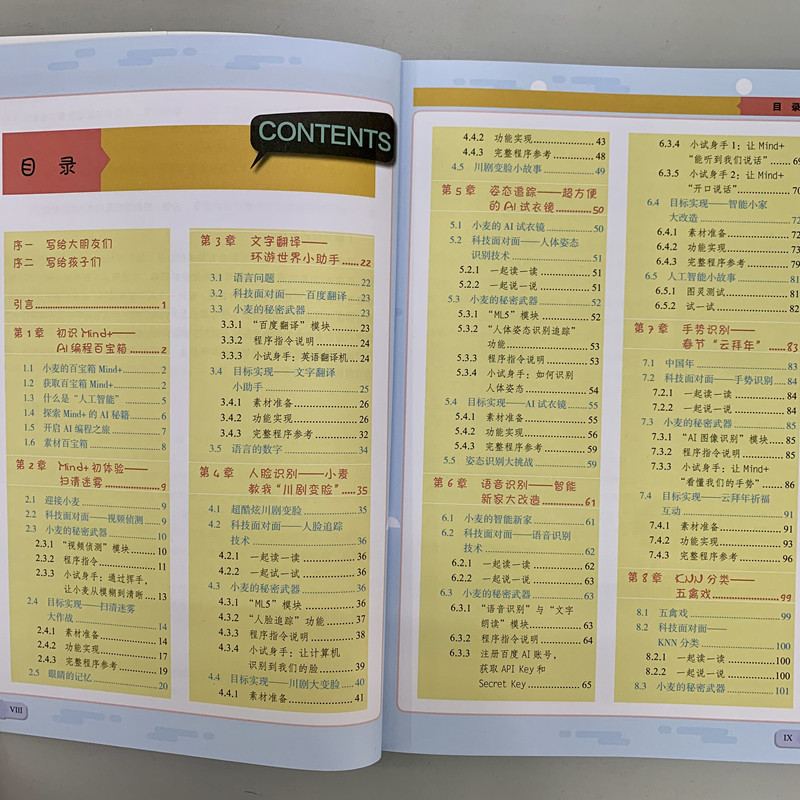 目 录
CONTENTS
序一 写给大朋友们
序二 写给孩子们
引言 1
第1章 初识Mind+——
AI编程百宝箱 2
1.1 小麦的百宝箱Mind+ 2
1.2 获取百宝箱Mind+ 2
1.3 什么是“人工智能” 5
1.4 探索Mind+的AI秘籍 6
1.5 开启AI编程之旅 7
1.6 素材百宝箱 8
第2章 Mind+初体验——
扫清迷雾 9
2.1 迎接小麦 9
2.2 科技面对面——视频侦测 9
2.3 小麦的秘密武器 10
2.3.1 “视频侦测”模块 10
2.3.2 程序指令 11
2.3.3 小试身手：通过挥手，
让小麦从模糊到清晰 13
2.4 目标实现——扫清迷雾
大作战 14
2.4.1 素材准备 14
2.4.2 功能实现 17
2.4.3 完整程序参考 19
2.5 眼睛的记忆 20
第3章 文字翻译——
环游世界小助手 22
3.1 语言问题 22
3.2 科技面对面——百度翻译 23
3.3 小麦的秘密武器 23
3.3.1 “百度翻译”模块 23
3.3.2 程序指令说明 24
3.3.3 小试身手：英语翻译机 24
3.4 目标实现——文字翻译
小助手 25
3.4.1 素材准备 26
3.4.2 功能实现 26
3.4.3 完整程序参考 32
3.5 语言的数字 34
第4章 人脸识别——小麦
教我“川剧变脸” 35
4.1 超酷炫川剧变脸 35
4.2 科技面对面——人脸追踪
技术 36
4.2.1 一起读一读 36
4.2.2 一起试一试 36
4.3 小麦的秘密武器 36
4.3.1 “ML5”模块 36
4.3.2 “人脸追踪”功能 37
4.3.3 程序指令说明 38
4.3.4 小试身手：让计算机
识别到我们的脸 39
4.4 目标实现——川剧大变脸 40
4.4.1 素材准备 41
VIII
目 录
4.4.2 功能实现 43
4.4.3 完整程序参考 48
4.5 川剧变脸小故事 49
第5章 姿态追踪——超方便
的AI试衣镜 50
5.1 小麦的AI试衣镜 50
5.2 科技面对面——人体姿态
识别技术 51
5.2.1 一起读一读 51
5.2.2 一起说一说 51
5.3 小麦的秘密武器 52
5.3.1 “ML5”模块 52
5.3.2 “人体姿态识别追踪”
功能 53
5.3.3 程序指令说明 53
5.3.4 小试身手：如何识别
人体姿态 54
5.4 目标实现——AI试衣镜 55
5.4.1 素材准备 55
5.4.2 功能实现 56
5.4.3 完整程序参考 59
5.5 姿态识别大挑战 59
第6章 语音识别——智能
新家大改造 61
6.1 小麦的智能新家 61
6.2 科技面对面——语音识别
技术 62
6.2.1 一起读一读 62
6.2.2 一起说一说 63
6.3 小麦的秘密武器 63
6.3.1 “语音识别”与“文字
朗读”模块 63
6.3.2 程序指令说明 64
6.3.3 注册百度AI账号，
获取API Key和
Secret Key 65
6.3.4 小试身手1：让Mind+
“能听到我们说话” 69
6.3.5 小试身手2：让Mind+
“开口说话” 70
6.4 目标实现——智能小家
大改造 72
6.4.1 素材准备 72
6.4.2 功能实现 73
6.4.3 完整程序参考 79
6.5 人工智能小故事 81
6.5.1 图灵测试 81
6.5.2 试一试 82
第7章 手势识别——
春节“云拜年” 83
7.1 中国年 83
7.2 科技面对面——手势识别 84
7.2.1 一起读一读 84
7.2.2 一起说一说 84
7.3 小麦的秘密武器 85
7.3.1 “AI图像识别”模块 85
7.3.2 程序指令说明 85
7.3.3 小试身手：让Mind+
“看懂我们的手势” 86
7.4 目标实现——云拜年祈福
互动 91
7.4.1 素材准备 91
7.4.2 功能实现 93
7.4.3 完整程序参考 96
第8章 KNN分类——
五禽戏 99
8.1 五禽戏 99
8.2 科技面对面——
KNN分类 100
8.2.1 一起读一读 100
8.2.2 一起说一说 100
8.3 小麦的秘密武器 101
IX